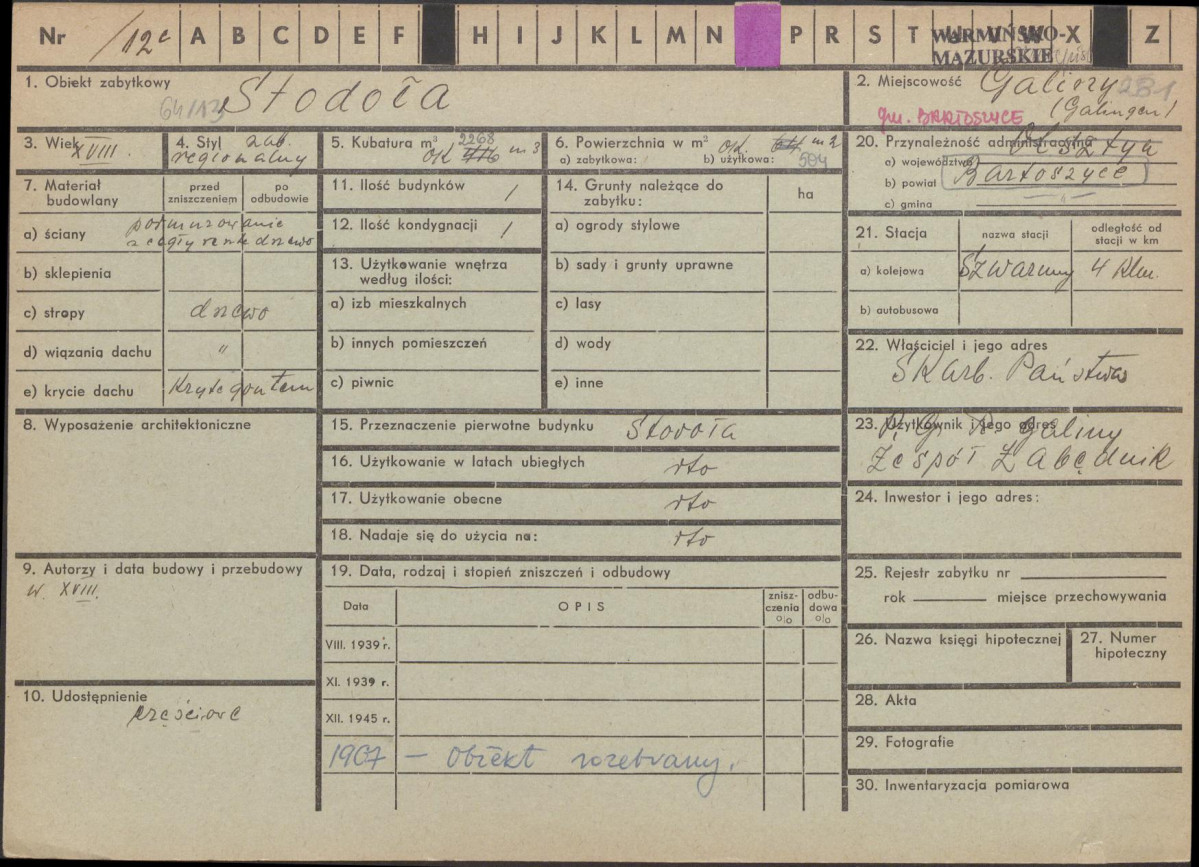 Nr /12c A B C D E F H I J K L M N P R S T U W X Z
WARMIŃSKO-
MAZURSKIE
1. Obiekt zabytkowy
Stodoła
2. Miejscowość Galiny
(Galingen)
gm. BARTOSZYCE
3. Wiek XVIII.
4. Styl zab.
regionalny
5. Kubatura m³ 2268
ok m3
6. Powierzchnia w m² ok. m2
a) zabytkowa: b) użytkowa: 504
20. Przynależność administracyjna
a) województwo Olsztyn
b) powiat Bartoszyce
c) gmina
7. Materiał budowlany
przed zniszczeniem
po odbudowie
a) ściany podmurowanie
z cegły reszta drzewo
b) sklepienia
c) stropy drzewo
d) wiązania dachu "
e) krycie dachu Kryte gontem
11. Ilość budynków 1
12. Ilość kondygnacji 1
13. Użytkowanie wnętrza
według ilości:
a) izb mieszkalnych
b) innych pomieszczeń
c) piwnic
14. Grunty należące do
zabytku:
ha
a) ogrody stylowe
b) sady i grunty uprawne
c) lasy
d) wody
e) inne
21. Stacja
nazwa stacji
odległość od
stacji w km
a) kolejowa Szwaruny 4 Klm.
b) autobusowa
22. Właściciel i jego adres
Skarb. Państwa
8. Wyposażenie architektoniczne
15. Przeznaczenie pierwotne budynku Stodoła
16. Użytkowanie w latach ubiegłych
17. Użytkowanie obecne
18. Nadaje się do użycia na:
23. Użytkownik i jego adres
P. G. R. Galiny
Zespół Łabędnik
24. Inwestor i jego adres:
9. Autorzy i data budowy i przebudowy
w. XVIII.
19. Data, rodzaj i stopień zniszczeń i odbudowy
Data
OPIS
znisz-
czenia
o|o
odbu-
dowa
o|o
VIII. 1939 r.
XI. 1939 r.
XII. 1945 r.
1967 – Obiekt rozebrany.
25. Rejestr zabytku nr
rok miejsce przechowywania
26. Nazwa księgi hipotecznej
27. Numer
hipoteczny
10. Udostępnienie
częściowe
28. Akta
29. Fotografie
30. Inwentaryzacja pomiarowa